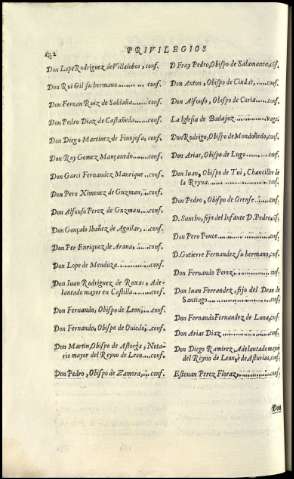 PRIVILEGIOS
Don Lope Rodriguez de Villalobos, conf.
Don Rui Gil su hermano............conf.
Don Fernan Ruiz de Saldaña......conf.
Don Pedro Diaz de Castañeda....conf.
Don Diego Martinez de Finojosa, conf.
Don Roy Gomez Mançanedo......conf.
Don Garci Fernandez Manrique...conf.
Don Pero Ximenez de Guzman....conf.
Don Alfonso Perez de Guzman....conf.
Don Gonçalo Ibañez de Aguilar...conf.
Don Per Enriquez de Arana.......conf.
Don Lope de Mendoza.............conf.
Don Juan Rodriguez de Roxas, Ade-
lantado mayor en Castilla.......conf.
Don Fernando, Obispo de Leon....conf.
Don Fernando, Obispo de Oviedo..conf.
Don Martin, Obispo de Astorga, Nota-
rio mayor del Reyno de Leon....conf.
Don Pedro, Obispo de Zamora.....conf.
D. Fray Pedro, Obispo de Salamanca, cof.
Don Anton, Obispo de Ciudat......conf.
Don Alfonso, Obispo de Coria.....conf.
La Iglesia de Badajoz............vaga.
Don Rodrigo, Obispo de Mondoñedo, conf.
Don Arias, Obispo de Lugo........conf.
Don Iuan, Obispo de Tui, Chanciller de
la Reyna.........................conf.
Don Pedro, Obispo de Orense......conf.
D. Sancho, fijo del Infante D. Pedro, cf.
Don Pero Ponce...................conf.
D. Gutierre Fernandez su hermano, conf.
Don Fernando Perez...............conf.
Don Iuan Fernandez, fijo del Dean de
Santiago.........................conf.
Don Fernan Fernandez de Lima, conf.
Don Arias Diaz...................conf.
Don Diego Ramirez, Adelantado mayor
del Reyno de Leon, è de Asturias, conf.
Estevan Perez Floraz.............conf.
Don